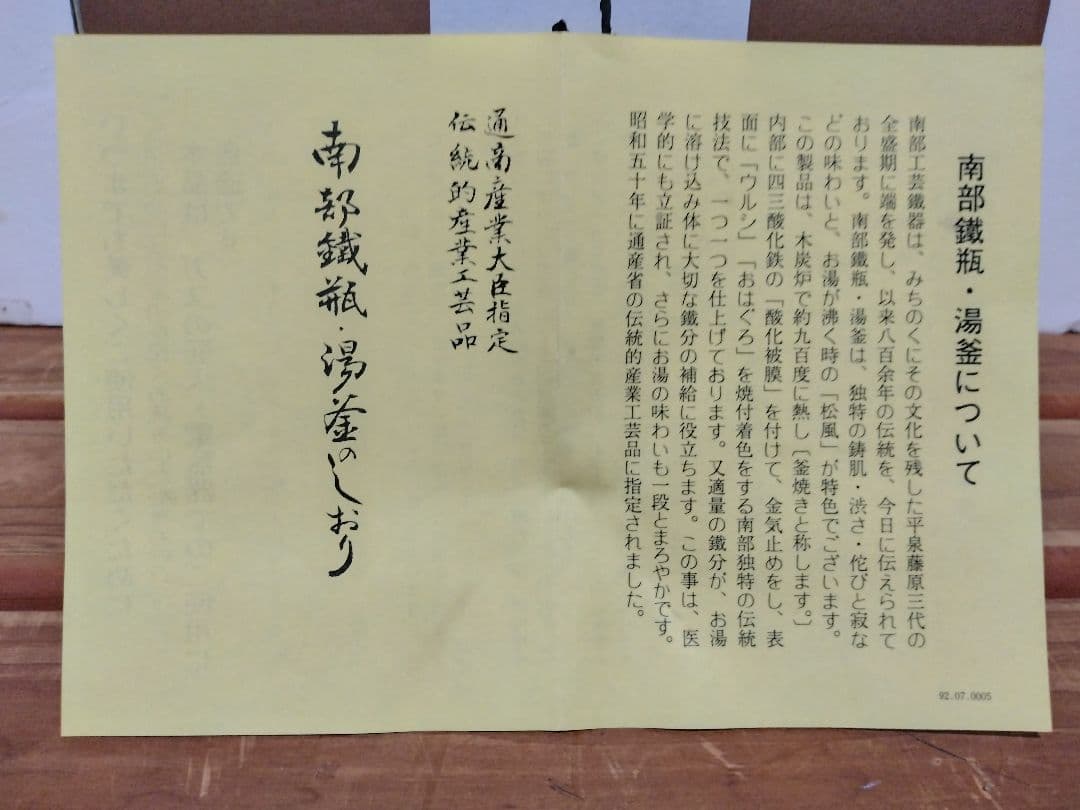 南部鐵瓶・湯釜について
南部工芸鐵器は、みちのくにその文化を残した平泉藤原三代の
全盛期に端を発し、以来八百余年の伝統を、今日に伝えられて
おります。南部鐵瓶・湯釜は、独特の鋳肌・渋さ・侘びと寂な
どの味わいと、お湯が沸く時の「松風」が特色でございます。
この製品は、木炭炉で約九百度に熱し〔釜焼きと称します。〕
内部に四三酸化鉄の「酸化被膜」を付けて、金気止めをし、表
面に「ウルシ」「おはぐろ」を焼付着色をする南部独特の伝統
技法で、一つ一つを仕上げております。又適量の鐵分が、お湯
に溶け込み体に大切な鐵分の補給に役立ちます。この事は、医
学的にも立証され、さらにお湯の味わいも一段とまろやかです。
昭和五十年に通産省の伝統的産業工芸品に指定されました。
92.07.0005
通商産業大臣指定
伝統的産業工芸品
南部鐵瓶・湯釜のしおり